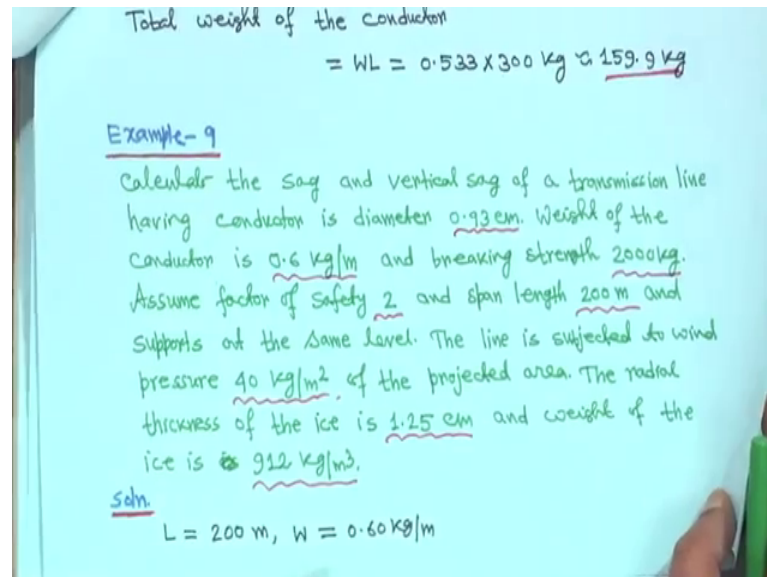 Total weight of the conductor
= WL = 0.533 X 300 kg ≈ 159.9 kg
Example-9
Calculate the sag and vertical sag of a transmission line
having conductor is diameter 0.93 cm. Weight of the
conductor is 0.6 kg/m and breaking strength 2000kg.
Assume factor of safety 2 and span length 200 m and
supports at the same level. The line is subjected to wind
pressure 40 kg/m² of the projected area. The radial
thickness of the ice is 1.25 cm and weight of the
ice is 912 kg/m³.
Soln.
L = 200 m, W = 0.60 kg/m